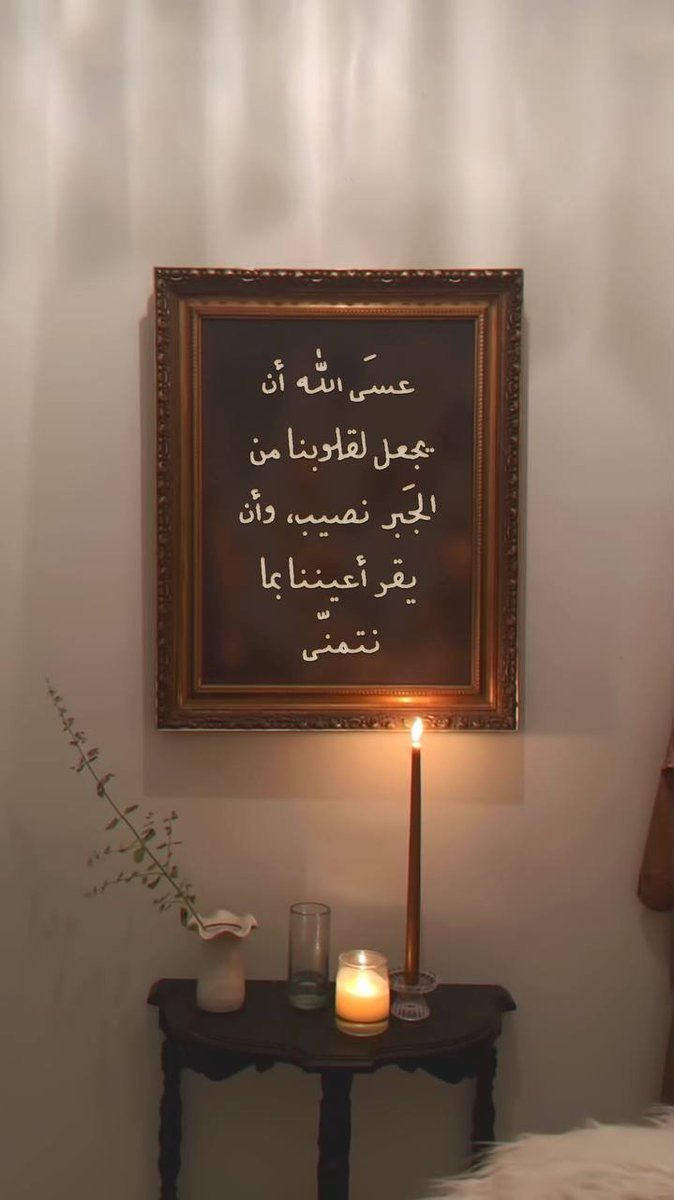 عسَى اللّٰه أن
يجعل لقلوبنا من
الجَبر نصيب، وأن
يقر أعيننا بما
نتمنّى